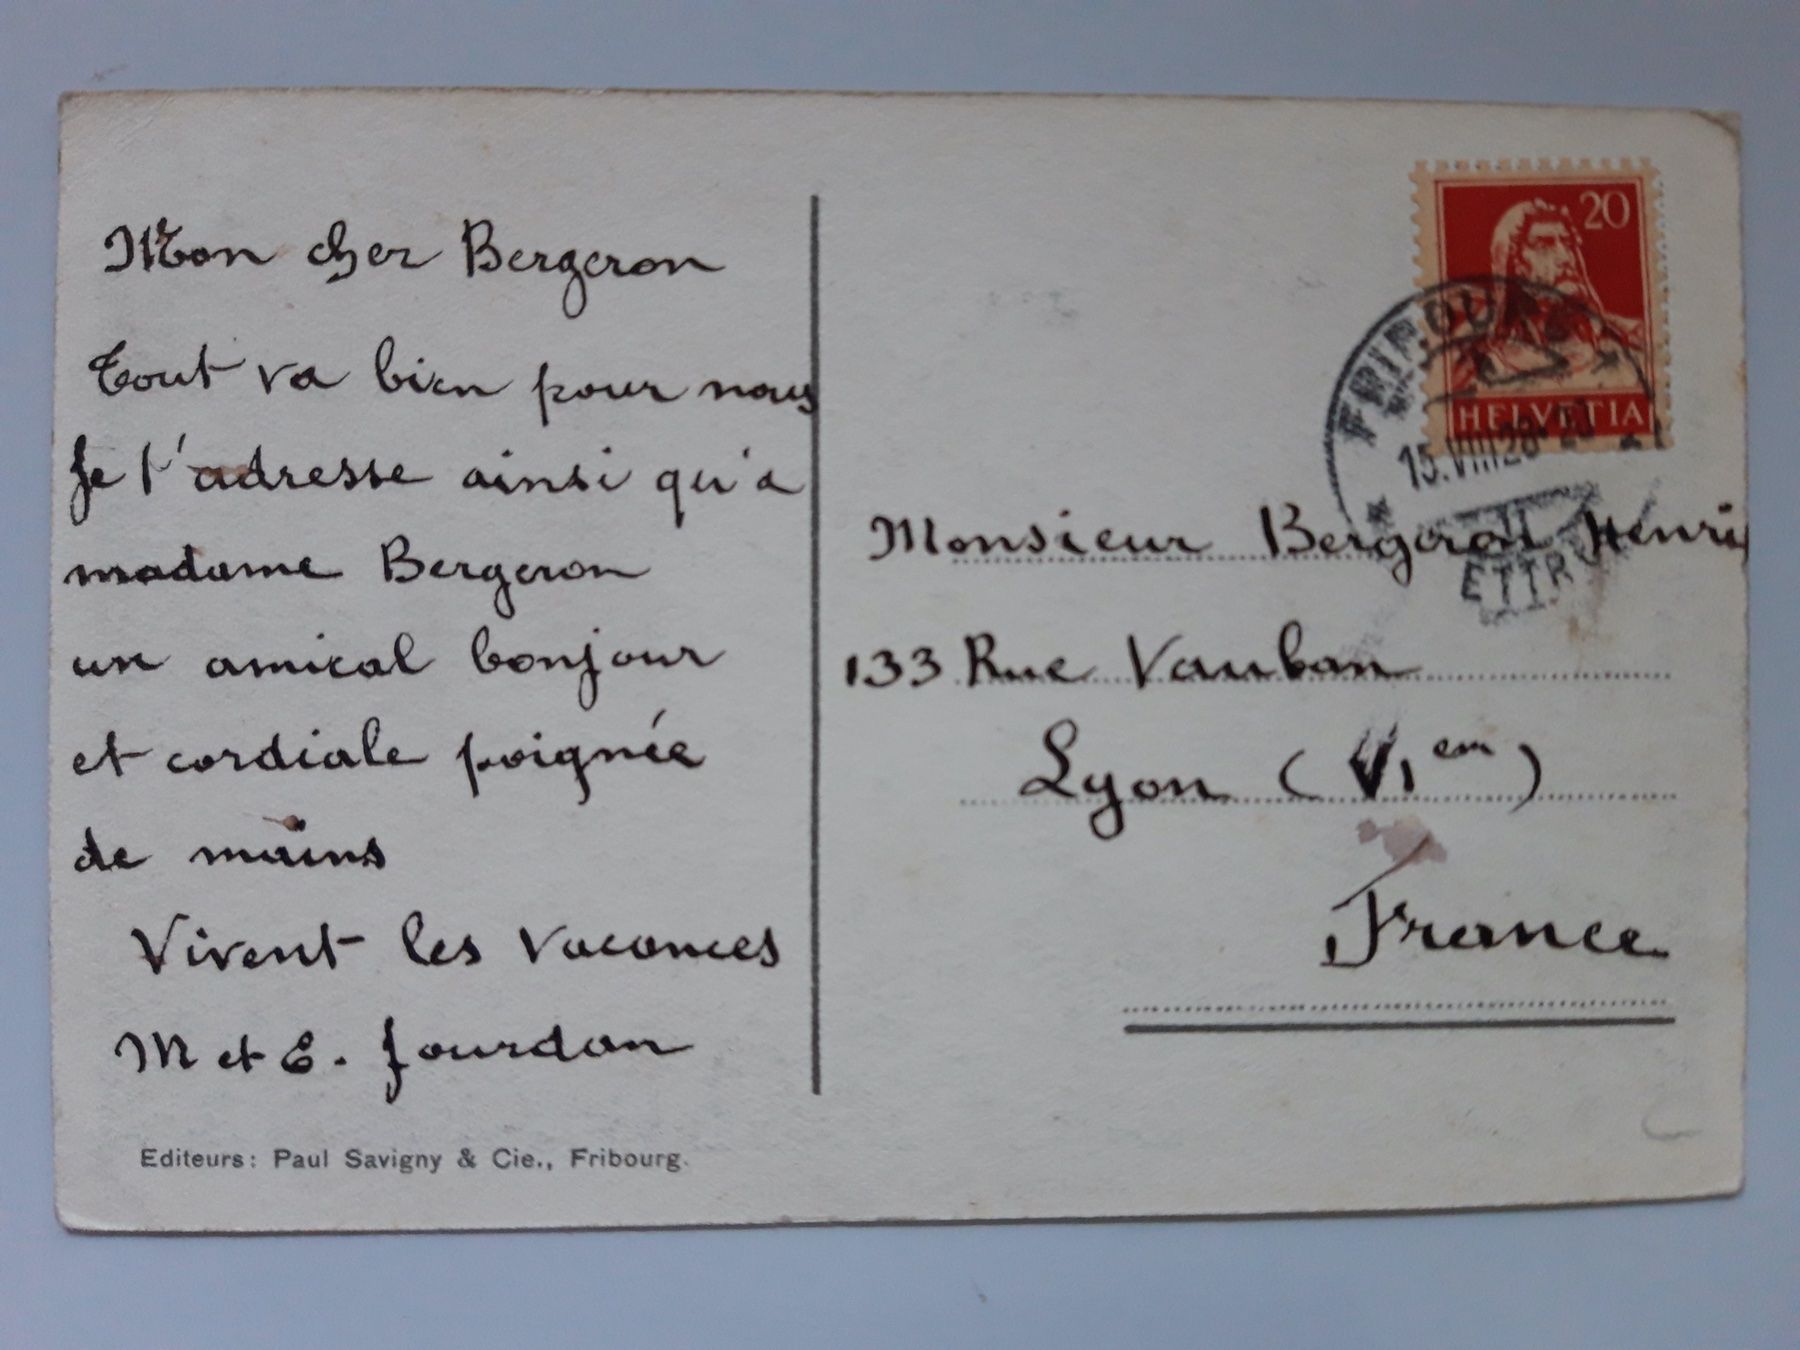 Mon cher Bergeron
Tout va bien pour nous
Je t'adresse ainsi qu'à
madame Bergeron
un amical bonjour
et cordiale poignée
de mains
Vivent les vacances
M et E. Jourdan
Editeurs: Paul Savigny & Cie., Fribourg.
20
HELVETIA
FRIBOURG
15.VIII28
Monsieur Bergeron Henri
133 Rue Vauban
Lyon (VI em)
France